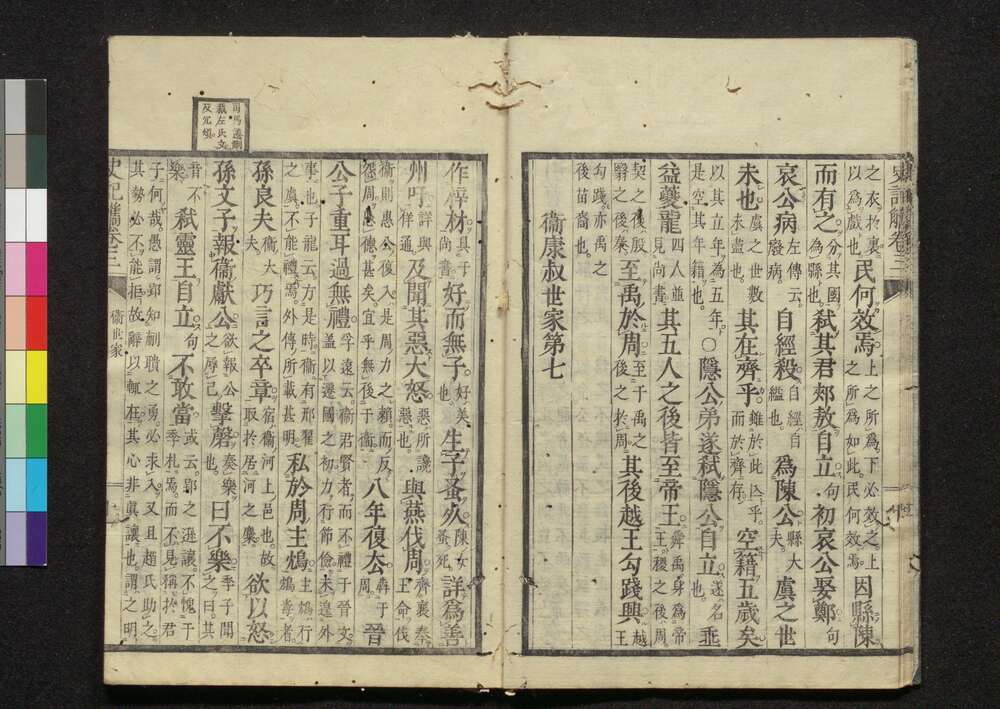 史記觽卷三
之衣於裏以為戲也民何效焉上之所為下必效之上之所為如此民何效焉因縣陳
而有之分其國為縣也弒其君郟敖自立句初哀公娶鄭句
哀公病左傳云廢病自經殺自經自縊也為陳公縣大夫虞之世
未也虞之世數未盡也其在齊乎雖於此亾乎而於齊存空籍五歲矣
以其立年為五年是空其年籍也○隱公弟遂弒隱公自立遂名也垂
益夔龍四人並見尚書其五人之後皆至帝王舜禹身為帝王稷之後周
契之後殷翳之後秦至禹於周至于禹之後之於周其後越王勾踐興越王
勾踐亦禹之後苗裔也
衞康叔世家第七
作梓材具于尚書好而無子好美也生子蚤死陳女蚤死詳為善
州吁詳與佯通及聞其惡大怒惡所讒惡也與燕伐周齊襄奉王命伐
衞則惠公後入是周力之賴而反怨周惠德甚矣宜乎無後于衞八年復公犇于周晉
公子重耳過無禮孚遠云衞君賢者而不禮于晉文蓋以遷國之初力行節儉未遑外
事也子龍云方是時衞有邢翟之虞不能禮焉外傳所載甚明私於周主鴆主鴆行鴆毒者
孫良夫衞大夫巧言之卒章宿衞河上邑也故取於居河之麋欲以怒
孫文子報衞獻公欲報公之辱己也擊磬奏樂也曰不樂季子聞之曰其
音不樂弒靈王自立句不敢當或云郢之遜讓不愧于季札焉而不見稱於君
子何哉愚謂郢知蒯聵之勇必求入又且趙氏助之其勢必不能拒故辭以輒在其心非眞讓也謂之明
史記觽卷三
衞世家
司馬遷剛
裁左氏文
反冗煩